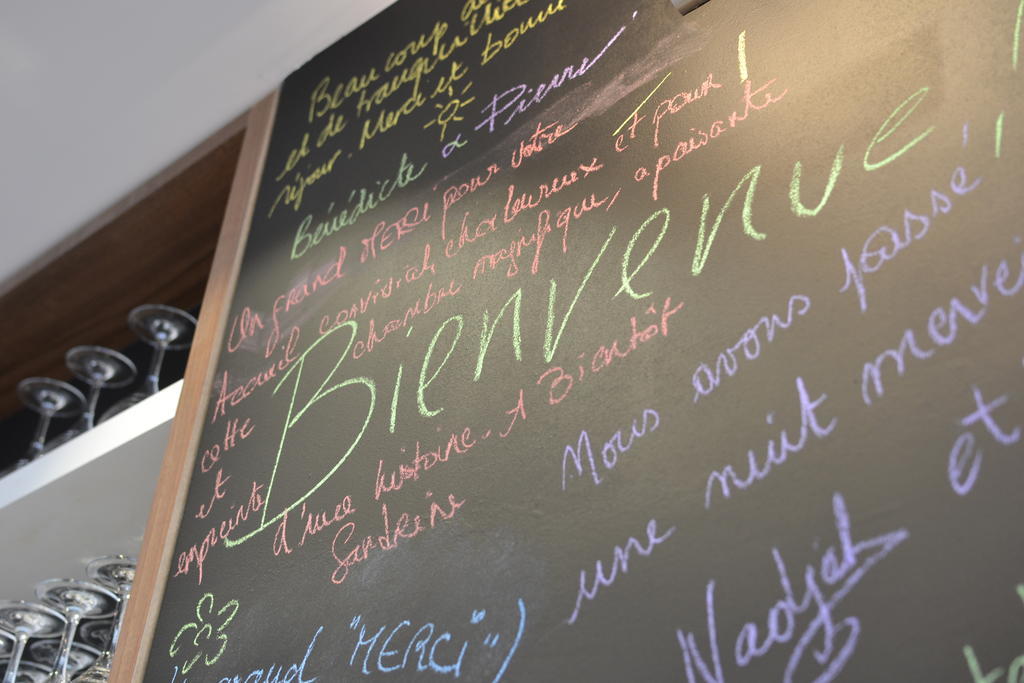 Beaucoup de
et de tranquillité
séjour. Merci et bonne
Bénédicte & Pierre
Un grand MERCi pour votre
Accueil convivial, chaleureux et pour !
cette chambre magnifique, apaisante
et
empreinte d'une histoire. A Bientôt
Sandrine
Bienvenue !
Nous avons passé
une nuit mervei
et
Nadjah
grand "MERCi")